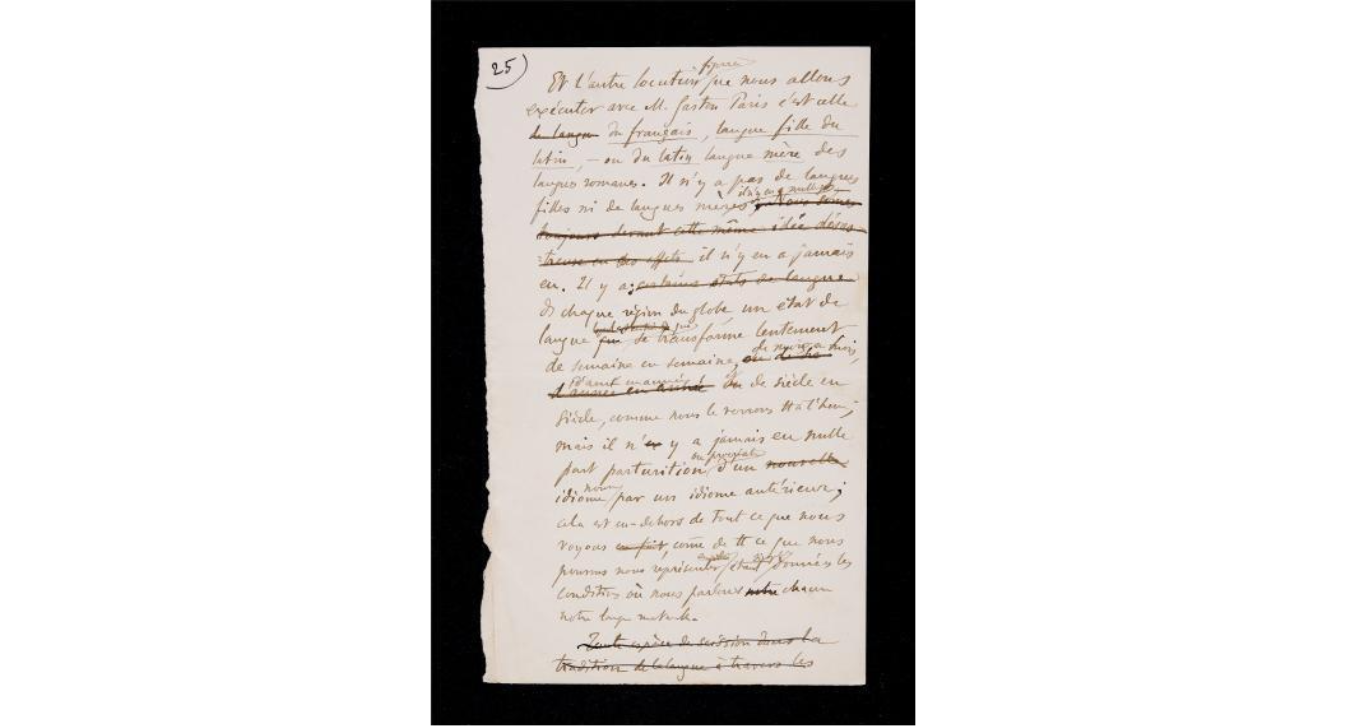 25)
figurée
Et l'autre locution que nous allons
exécuter avec M. Gaston Paris c'est celle
de langue du français, langue fille du
latin, – ou du latin langue mère des
langues romanes. Il n'y a pas de langues
il n'y en a nulle part
filles ni de langues mères, Nous sommes
toujours devant cette même idée désas-
treuse en ses effets il n'y en a jamais
eu. Il y a certains états de langue
ds chaque région du globe un état de
langue qui se transforme lentement
de mois en mois,
de semaine en semaine, ou de
d'année en année
d'année en année et de siècle en
siècle, comme nous le verrons tt à l'heure;
mais il n'en y a jamais eu nulle
ou procréation
part parturition d'un nouvelle
nouveau
idiome par un idiome antérieur;
cela est en-dehors de tout ce que nous
voyons en fait, come de tt ce que nous
pouvons nous représenter étant données les
conditions où nous parlons notre chacun
notre langue maternelle.
Toute espèce de scission dans la
tradition de la langue à travers les